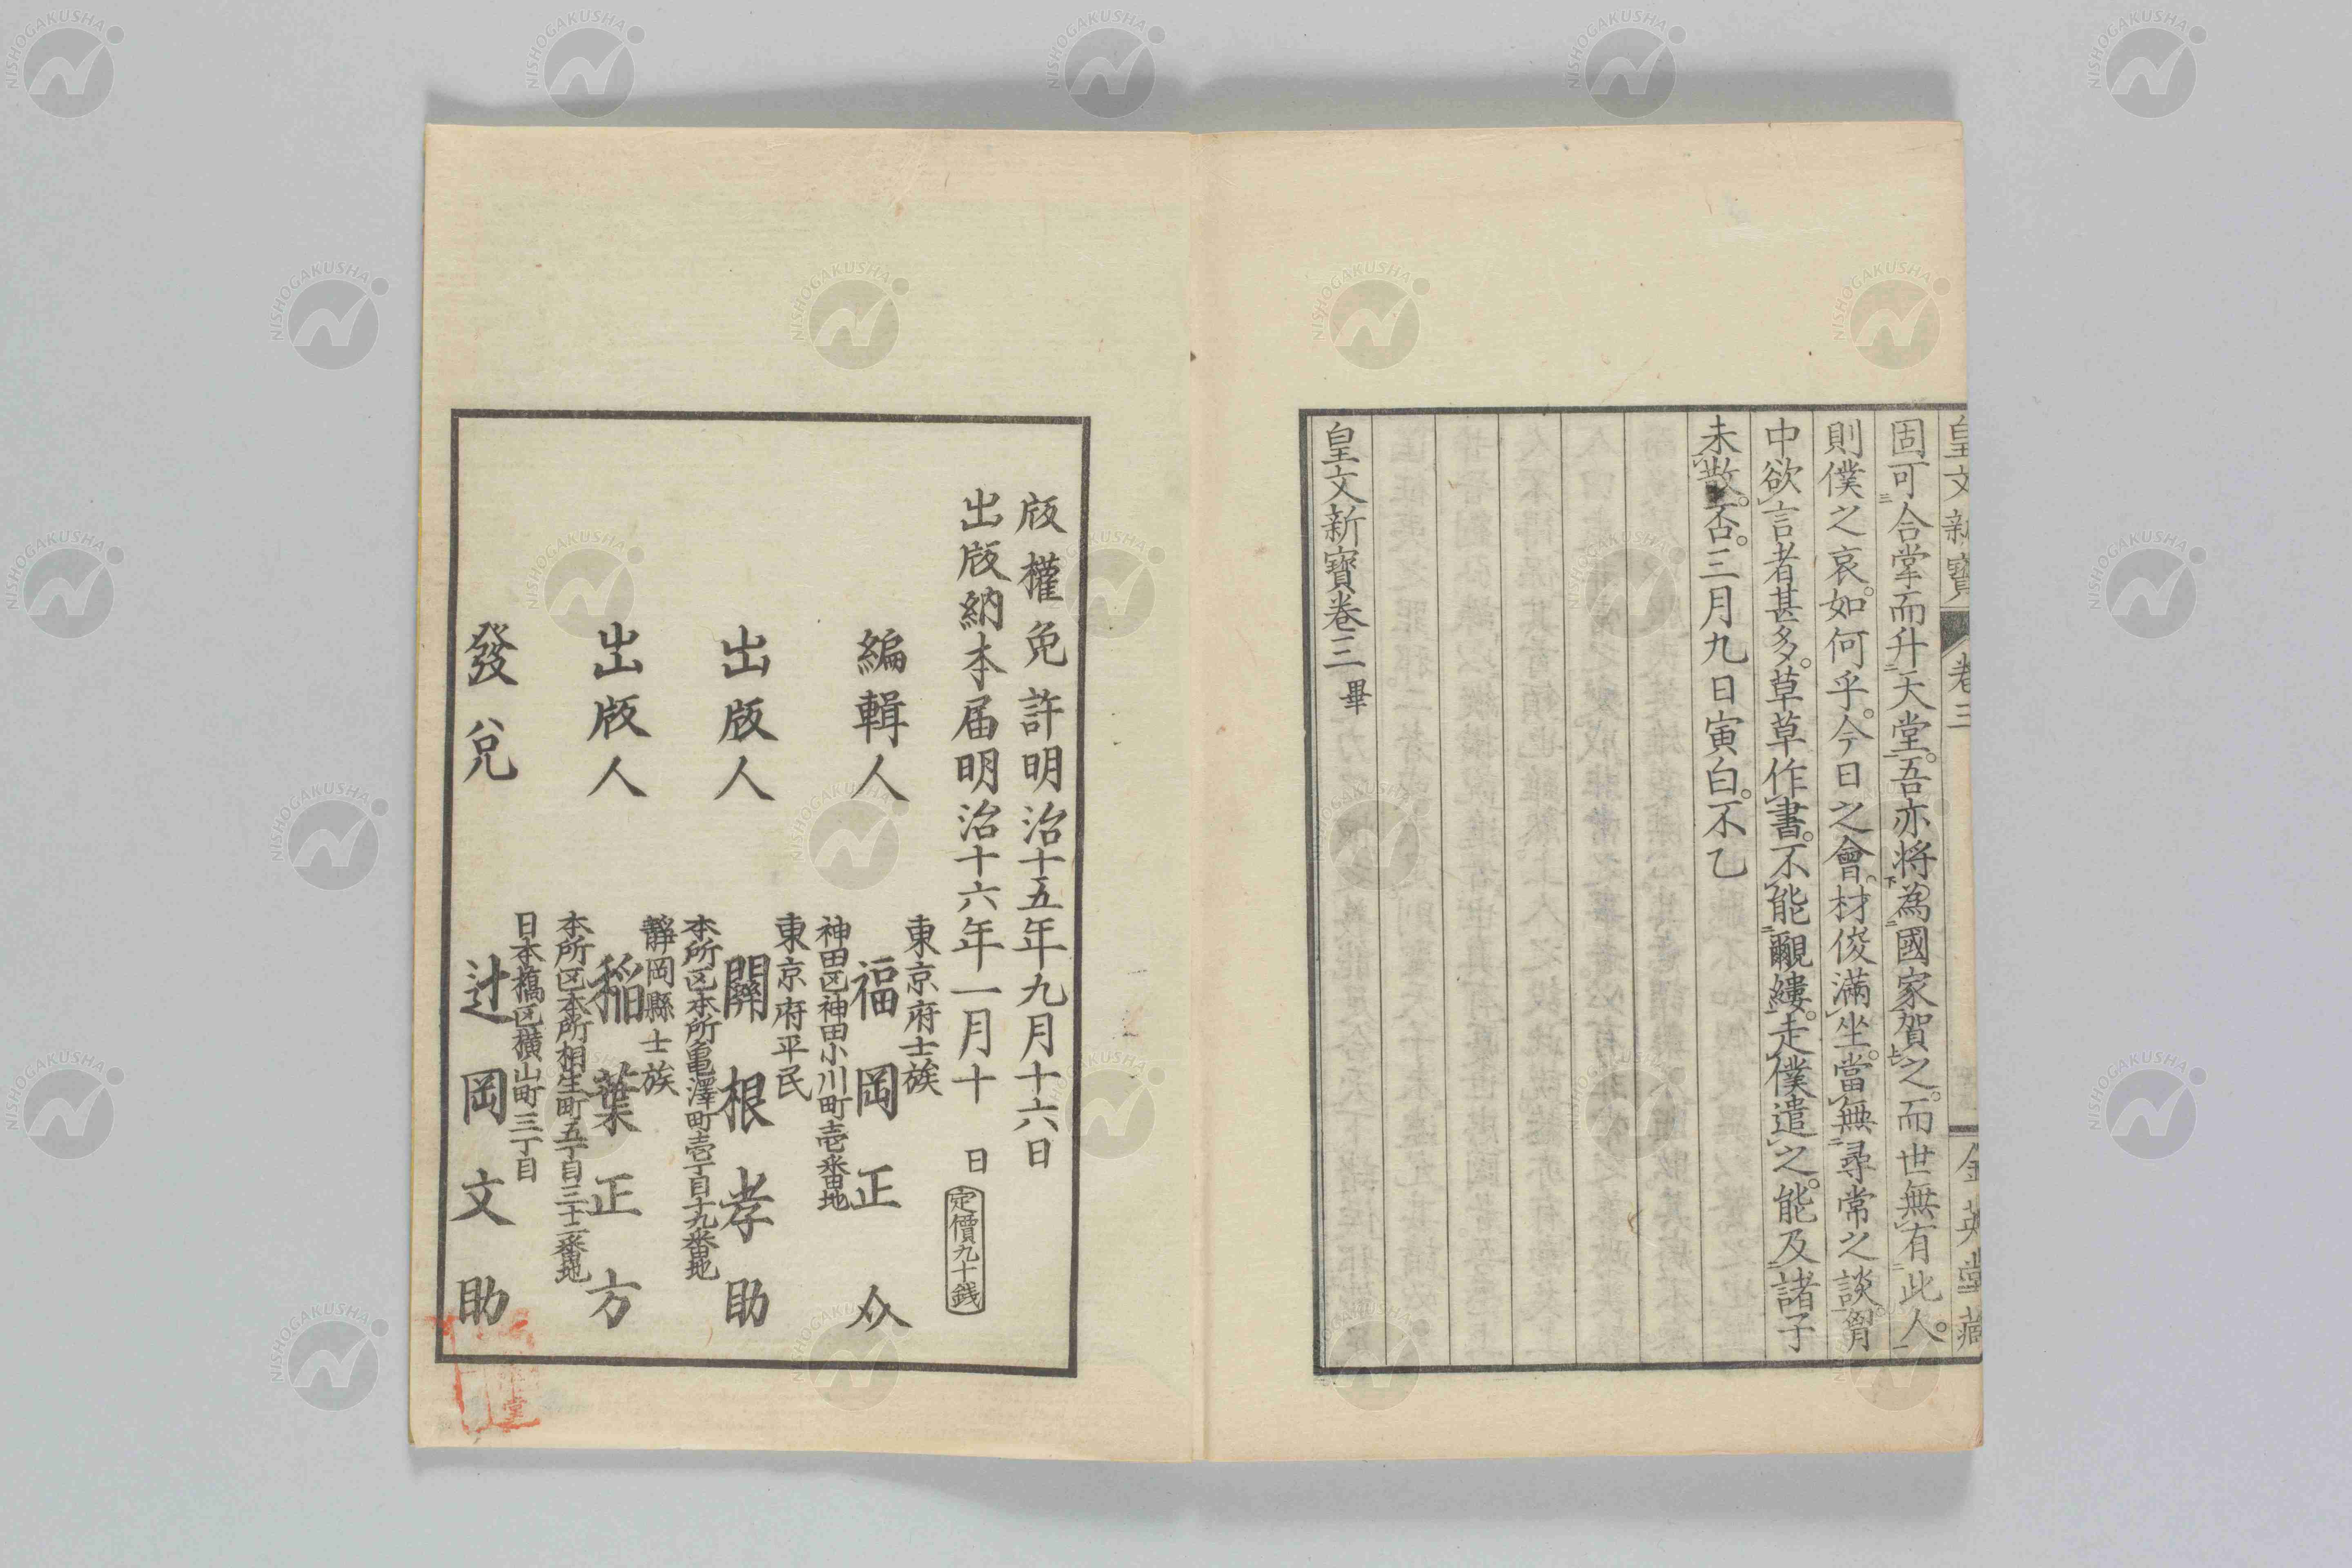 皇文新寶 卷三 金英堂藏
固可合掌而升天堂。吾亦將為國家賀之。而世無有此人。
則僕之哀。如何乎。今日之會。材俊滿坐。當無尋常之談。胷
中欲言者甚多。草草作書。不能覼縷。走僕遣之。能及諸子
未散。否。三月九日寅白。不乙
皇文新寶卷三畢
版權免許明治十五年九月十六日
出版納本届明治十六年一月十日
定價九十銭
東京府士族
編輯人 福岡正㣺
神田区神田小川町壱番地
東京府平民
出版人 關根孝助
本所区本所亀澤町壱丁目十九番地
靜岡縣士族
出版人 稲葉正方
本所区本所相生町五丁目三十二番地
日本橋区横山町三丁目
發兌 辻岡文助
NISHOGAKUSHA